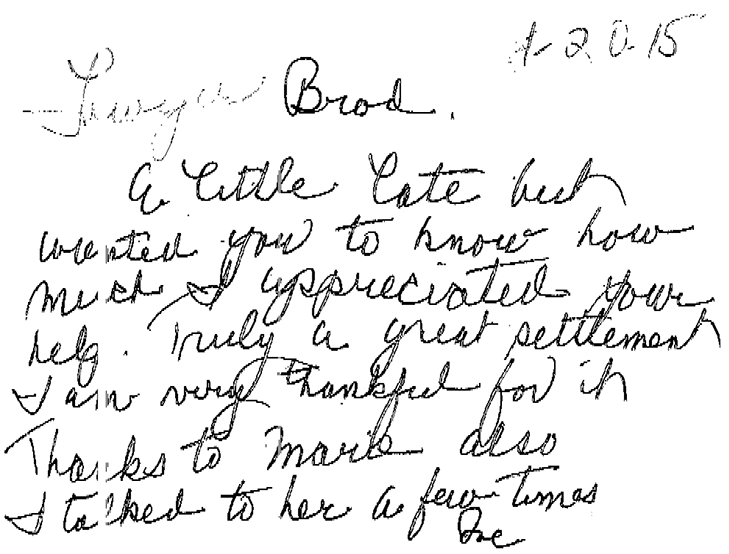 4-20-15
Lawyer Brod.
A little late but
wanted you to know how
much I appreciated your
help. Truly a great settlement
I am very thankful for it
Thanks to Marie also
I talked to her a few times